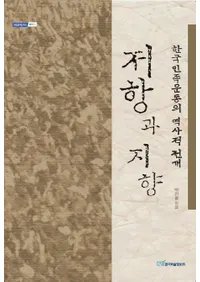 한국민족운동의 역사적 전개
저항과 지향